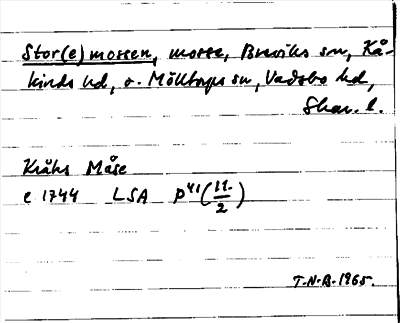 Stor(e)mossen, mosse, Breviks sn, Kå-
kinds hd, o. Mölltorps sn, Vadsbo hd,
Skar. l.
Kråks Måse
e 1744 LSA P41(11/2)
T.N.B. 1965.